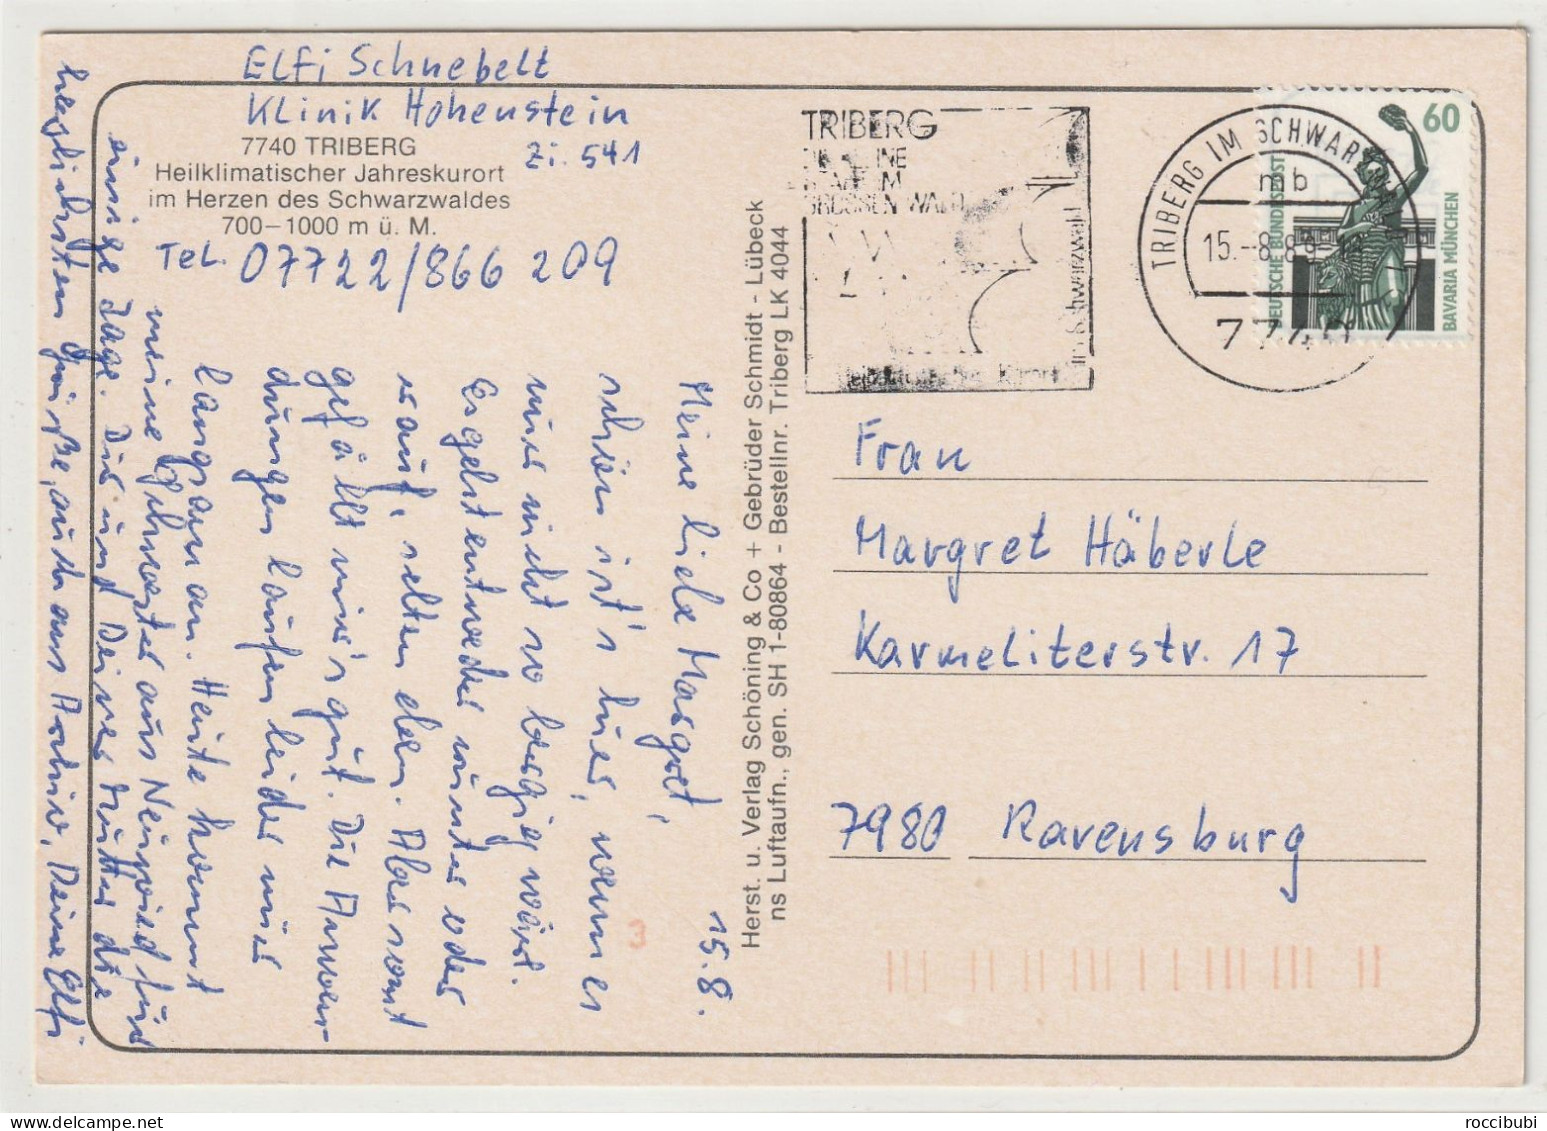 ELFi Schnebelt
Klinik Hohenstein
7740 TRIBERG
Zi. 541
Heilklimatischer Jahreskurort
im Herzen des Schwarzwaldes
700–1000 m ü. M.
Tel. 07722/866 209
15.8.
Meine liebe Margret,
schön ist's hier, wenn es
nur nicht so bergig wäre.
Es geht entweder runter oder
rauf, selten eben. Aber sonst
gefällt mir's gut. Die Anwen-
dungen laufen leider nur
langsam an. Heute kommt
meine Schwester aus Neuwied für
einige Tage. Dir und Deiner Mutter die
herzlichsten Grüße, auch aus Deine Elfi
Herst. u. Verlag Schöning & Co + Gebrüder Schmidt - Lübeck
ns Luftaufn., gen. SH 1-80864 - Bestellnr. Triberg LK 4044
3
TRIBERG
GROSSEN WALD
im Schwarzwald
TRIBERG IM SCHWARZW
mb
15.-8.89
7740
60
DEUTSCHE BUNDESPOST
BAVARIA MÜNCHEN
Frau
Margret Häberle
Karmeliterstr. 17
7980 Ravensburg
roccibubi